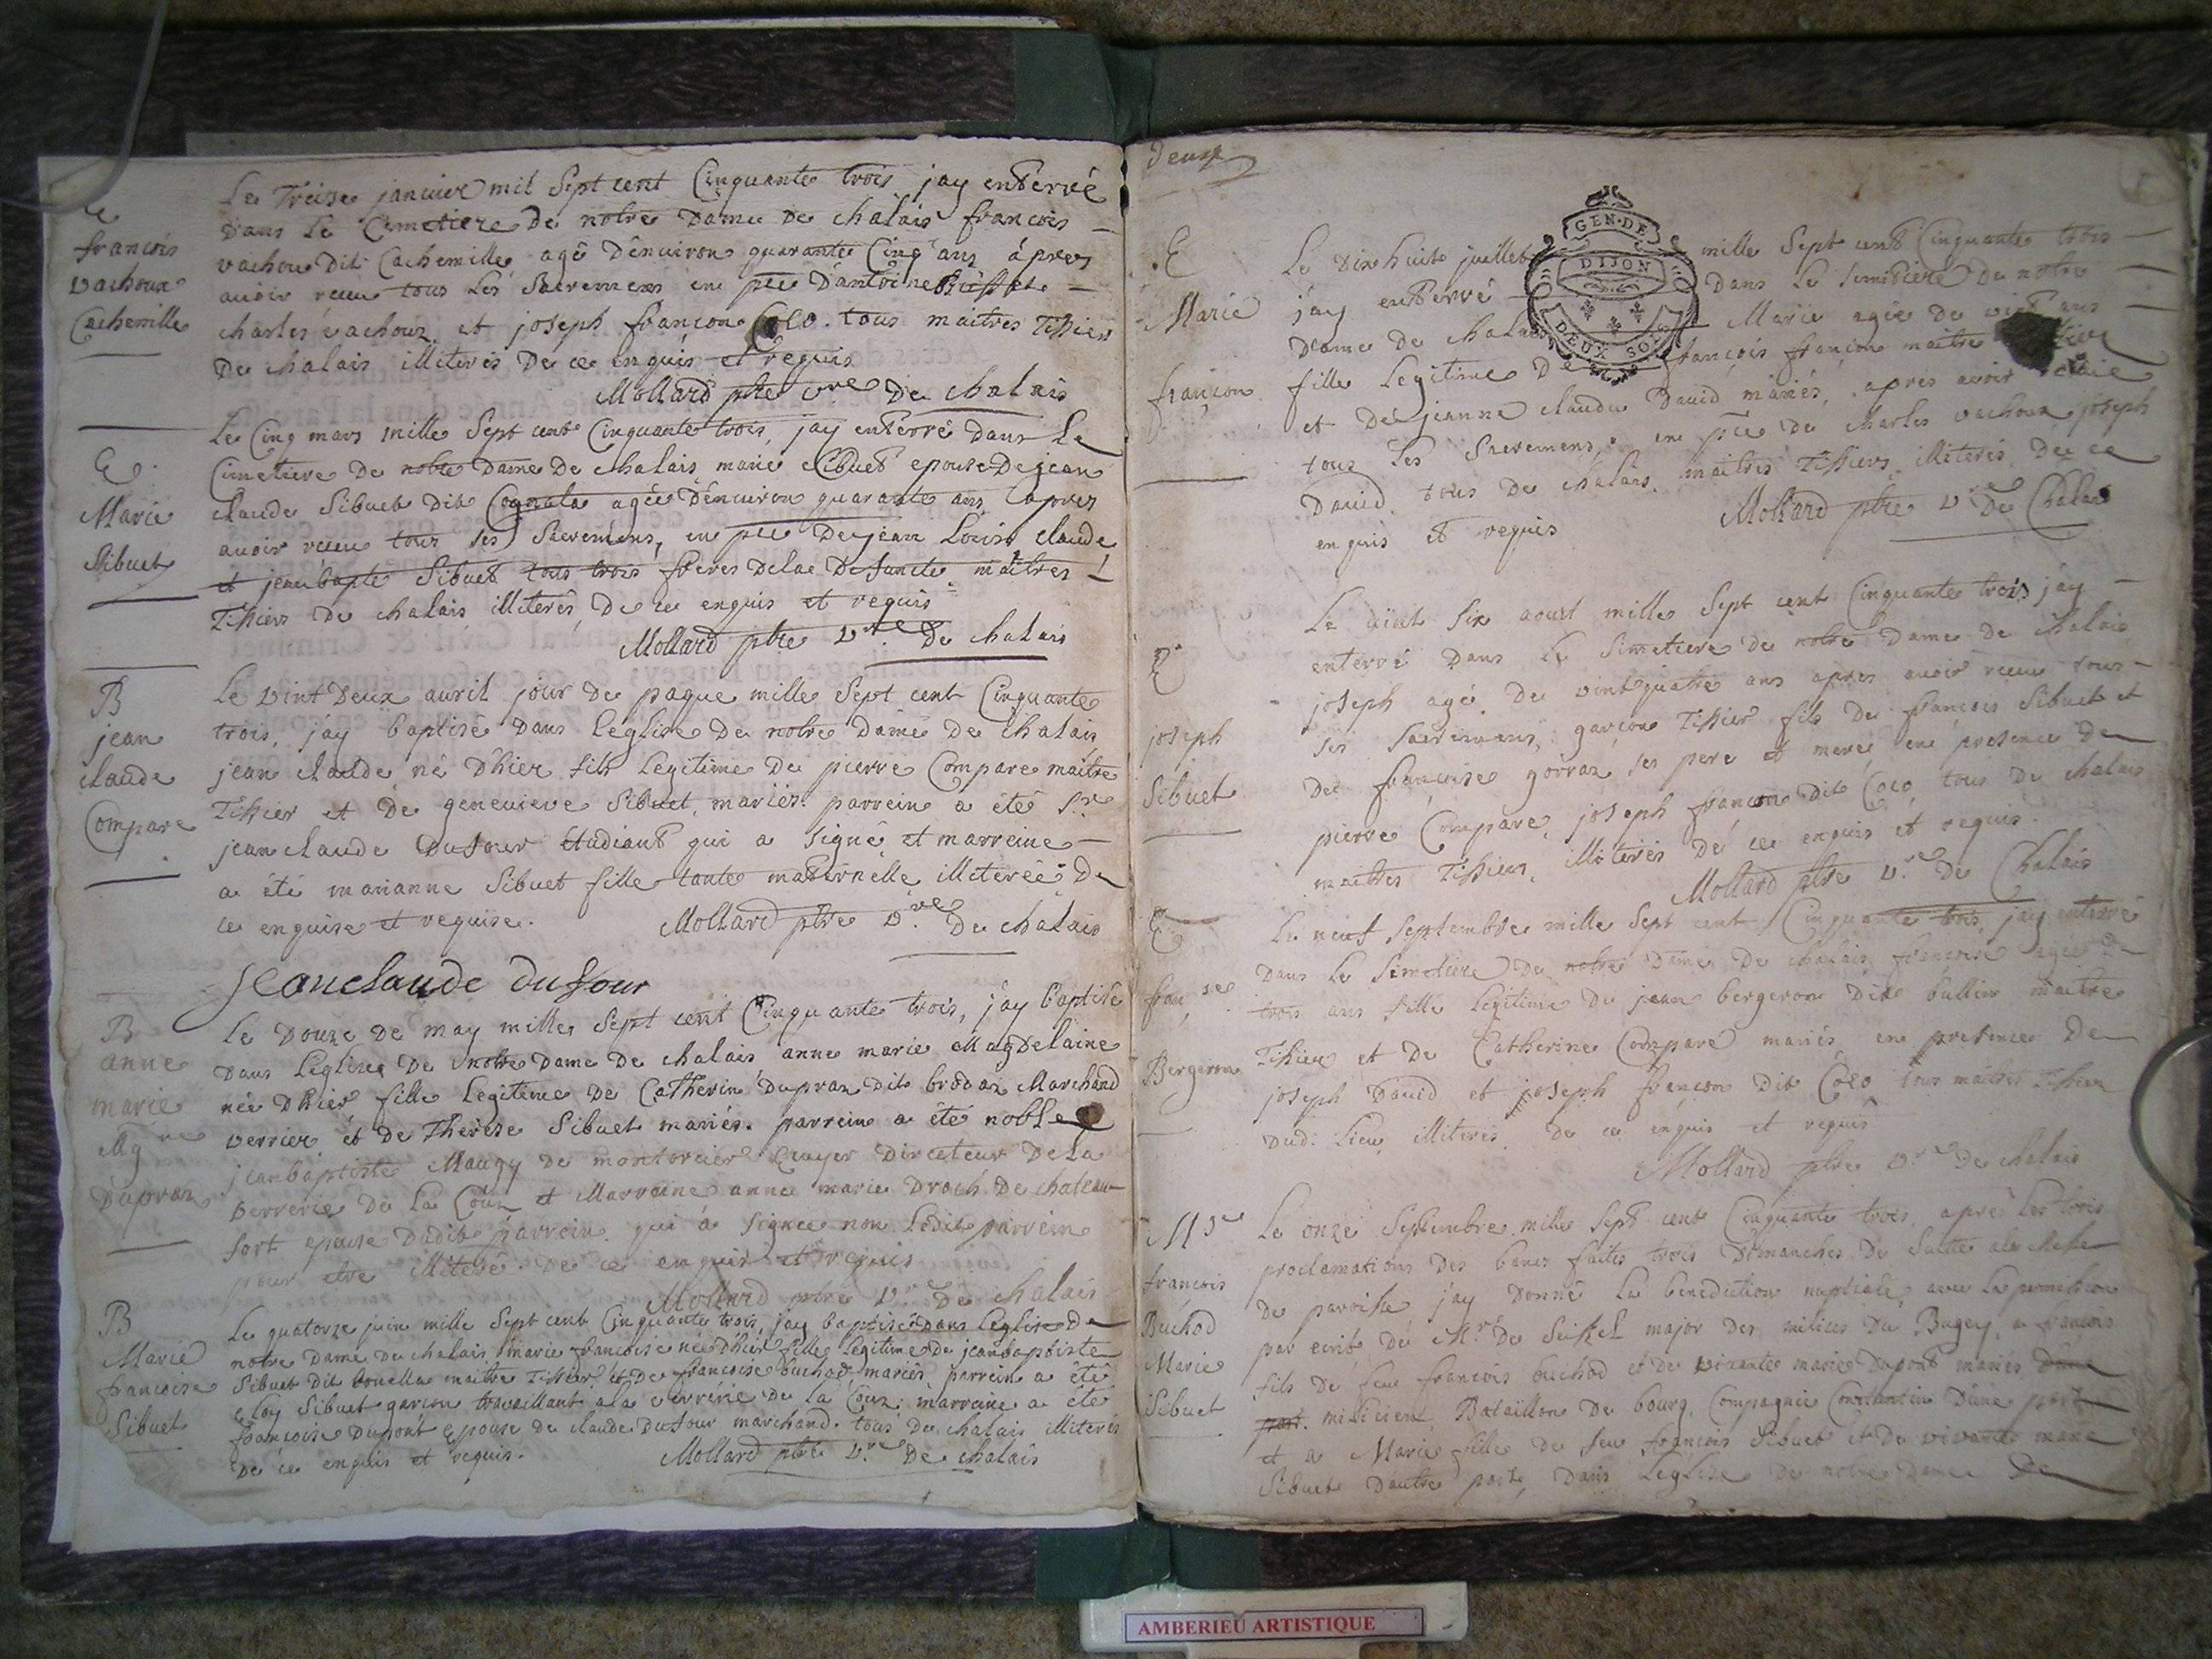 Le Treise janvier mil Sept cent Cinquante trois jay enterré
dans Le Cemetiere De notre Dame De chalais francois
vachou Dit Cachemille agé Denviron quarante Cinq ans aprés
avoir receu tous Les Sacremens en pce Dantoine
charles vachoux et joseph françon Coco tous maitres Tissier
De chalais illiterés De ce enquis et requis
Mollard ptre v.re De chalais
E
francois
vachoux
Cachemille
Le Cinq mars mille Sept cent Cinquante trois, jay enterré dans Le
Cimetiere De notre Dame De chalais marie Sibuet epouse De jean
claude Sibuet dit Cognata agée Denviron quarante ans apres
avoir receu tous ses Sacremens, en pce De jean Louis, claude
et jean bapte Sibuet tous trois freres de lae Defuncte maitres
Tissiers De chalais illiterés, De ce enquis et requis
Mollard ptre v.re De chalais
E
Marie
Sibuet
Le vint Deux avril jour De paque mille Sept cent Cinquante
trois, jay baptisé Dans Leglise De notre Dame De chalais
jean claude né Dhier fils Legitime De pierre Compare maitre
Tissier et De genevieve Sibuet, mariés. parrein a été Sr
jean claude Dufour étudiant qui a Signé et marreine
a été marianne Sibuet fille tante maternelle illiterée De
ce enquise et requise.
Mollard ptre v.re De chalais
jeanclaude dufour
B
jean
claude
Compare
Le Douze De may mille Sept cent Cinquante trois, jay baptisé
Dans Leglise De notre Dame De chalais anne marie Magdelaine
née Dhier fille Legitime De Catherin Dupraz dit brodaz Marchand
verrier et de Therese Sibuet mariés. parrein a été noble
jeanbaptiste Maugy de montorcier Ecuyer Directeur De La
verrerie De La Coux et Marreine anne marie Drach De chateau
fort epouse Dudit parrein qui á Signee non Ledit parrein
pour etre illiteré. De ce enquis et requis
Mollard ptre v.re De chalais
B
anne
marie
Mg ne
Dupraz
Le quatorze juin mille Sept cent Cinquante trois, jay baptisé dans Leglise De
notre Dame De chalais marie francoise née Dhier fille Legitime De jeanbaptiste
Sibuet Dit bouella maitre Tissier et De francoise buchod, mariés, parrein a été
Eloy Sibuet garçon travaillant ala verrerie De la Coux, marreine a été
francoise Dupont Epouse De claude Dufour marchand. tous De chalais illiterés
De ce enquis et requis.
Mollard ptre v.re De chalais
B
Marie
francoise
Sibuet
Deux
GEN·DE
DIJON
DEUX SOLS
Le Dix huit juillet mille Sept cent Cinquante trois
jay enterré Dans Le Simitiere De notre
Dame De chalais Marie agée De vint ans
fille Legitime De françois françon maitre
et De jeanne claude David mariés, aprés avoir
tous Les Sacremens, en pce De charles vachoux joseph
David tous De chalais maitres Tissiers illiterés De ce
enquis et requis
Mollard ptre v.re De Chalais
E
Marie
françon
Le vint Six aoust mille Sept cent Cinquante trois jay
enterré Dans Le Simetiere De notre Dame De chalais
joseph agé De vint quatre ans aprés avoir receu tous
ses Sacremens, garçon Tissier fils De francois Sibuet et
De françoise gorraz ses pere et mere, en presence De
pierre Compare, joseph françon Dit Coco tous De chalais
maitres Tissiers, illiterés De ce enquis et requis.
Mollard ptre v.re De Chalais
E
joseph
Sibuet
Le neuf Septembre mille Sept cent Cinquante trois, jay enterré
Dans Le Simetiere De notre Dame De chalais françoise agée De
trois ans fille Legitime De jean bergeron Dit bullin maitre
Tissier et De Catherine Compare mariés en presence De
joseph David et joseph françon Dit Coco tous maitres Tissiers
Dud. Lieu illiterés De ce enquis et requis
Mollard ptre v.re De chalais
E
fran.se
Bergeron
Le onze Septembre mille Sept cent Cinquante trois aprés Les trois
proclamations Des bancs faites trois Dimanches De Suitte ala Messe
De paroisse jay Donné La benediction nuptiale, avec La permission
par ecrit De Mr De Seissel major Des milices Du Bugey, a francois
fils De feu francois buchod et De vivante marie Dupont mariés Dune
part. milicien Bataillon De bourg Compagnie Constantin Dune part
et a Marie fille De feu francois Sibuet et De vivante marie
Sibuet Dautre part, Dans Leglise De notre Dame De
M
francois
Buchod
Marie
Sibuet
AMBERIEU ARTISTIQUE